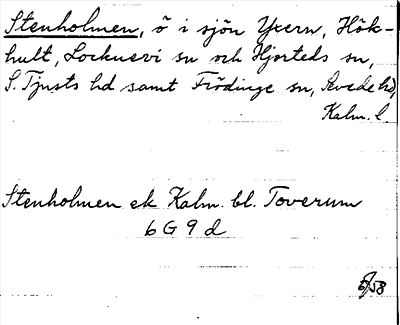 Stenholmen, ö i sjön Yxern, Hök-
hult, Locknevi sn och Hjorteds sn,
S. Tjusts hd samt Frödinge sn, Sevede hd,
Kalm. l.
Stenholmen ek Kalm. bl. Toverum
6 G 9 d
/58